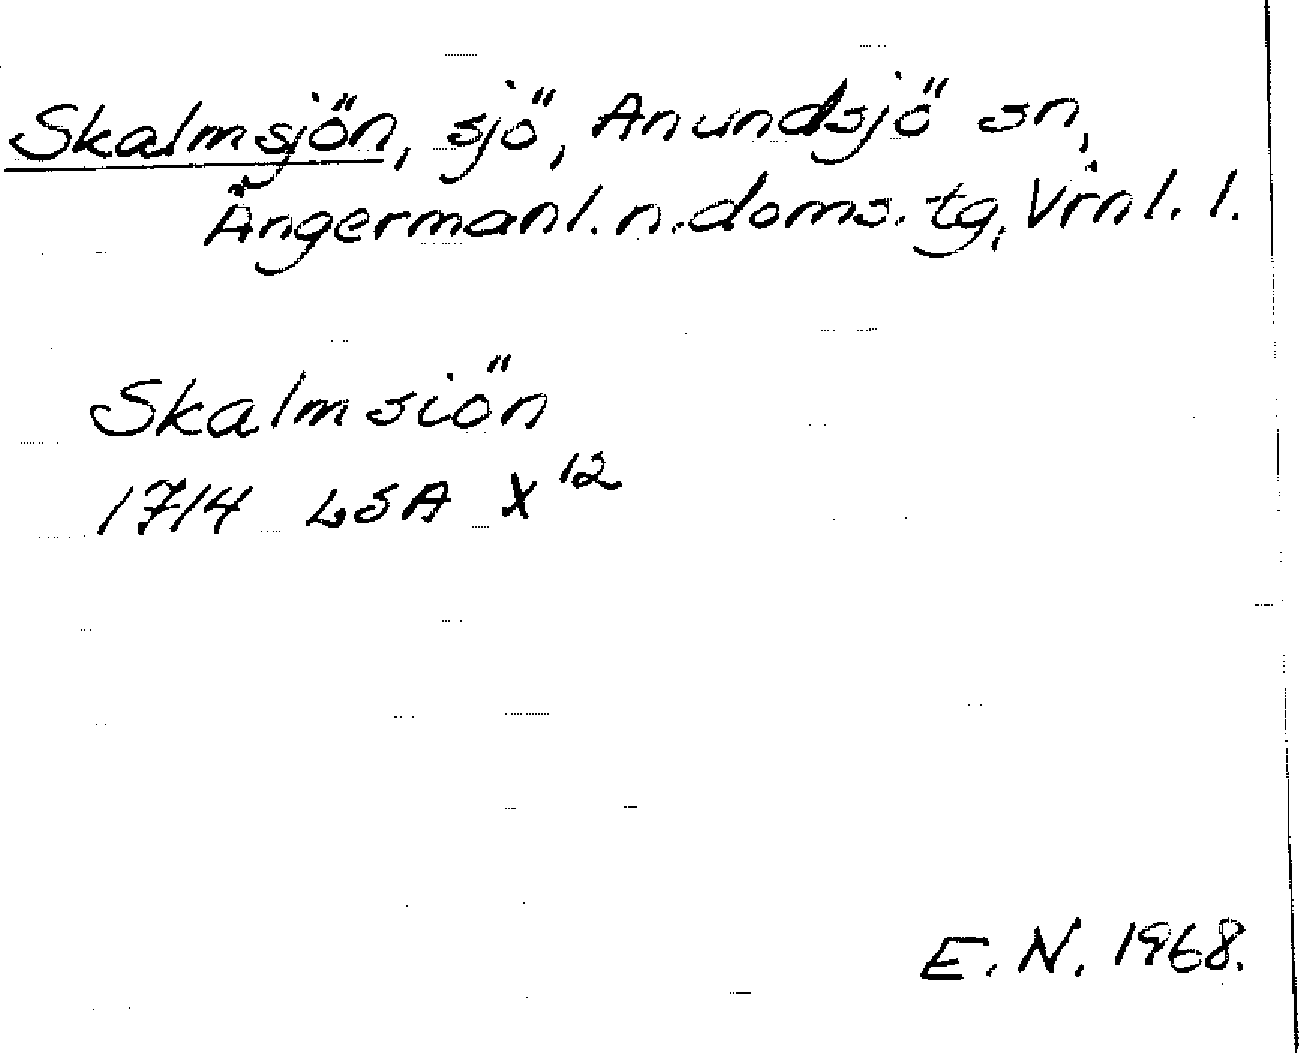 Skalmsjön, sjö, Anundsjö sn,
Ångermanl. n. doms. tg, Vrnl. l.
Skalmsiön
1714 LSA X 12
E. N. 1968.